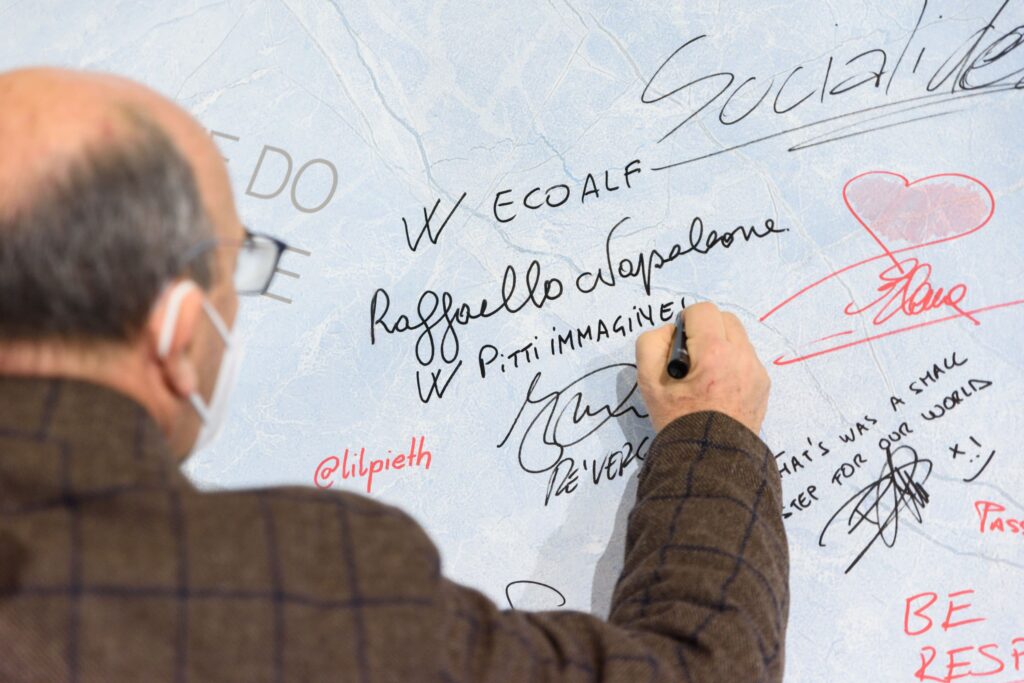 Socialide
DO
E
W ECOALF
Raffaello Napoleone
W PITTI IMMAGIINE!
@lilpieth
THAT'S WAS A SMALL
STEP FOR OUR WORLD
x !
PASS
BE
RESP